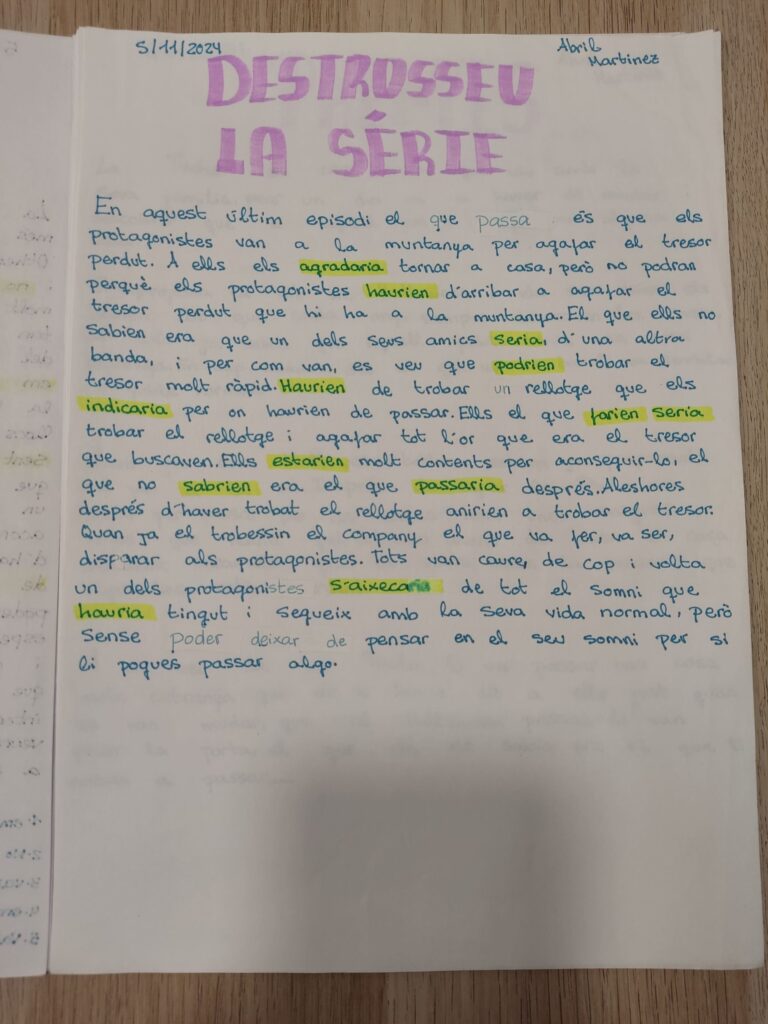 5/11/2024
Abril
Martinez
DESTROSSEU
LA SÉRIE
En aquest últim episodi el que passa és que els
protagonistes van a la muntanya per agafar el tresor
perdut. A ells els agradaria tornar a casa, però no podran
perquè els protagonistes haurien d'arribar a agafar el
tresor perdut que hi ha a la muntanya. El que ells no
sabien era que un dels seus amics seria, d'una altra
banda, i per com van, es veu que podrien trobar el
tresor molt ràpid. Haurien de trobar un rellotge que els
indicaria per on haurien de passar. Ells el que farien seria
trobar el rellotge i agafar tot l'or que era el tresor
que buscaven. Ells estarien molt contents per aconseguir-lo, el
que no sabrien era el que passaria després. Aleshores
després d'haver trobat el rellotge anirien a trobar el tresor.
Quan ja el trobessin el company el que va fer, va ser,
disparar als protagonistes. Tots van caure, de cop i volta
un dels protagonistes s'aixecaria de tot el somni que
hauria tingut i segueix amb la seva vida normal, però
sense poder deixar de pensar en el seu somni per si
li pogues passar algo.